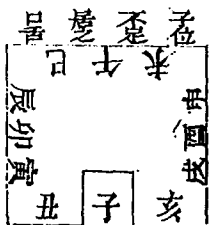 子位
巳午未
辰卯寅
申酉戌
丑子亥